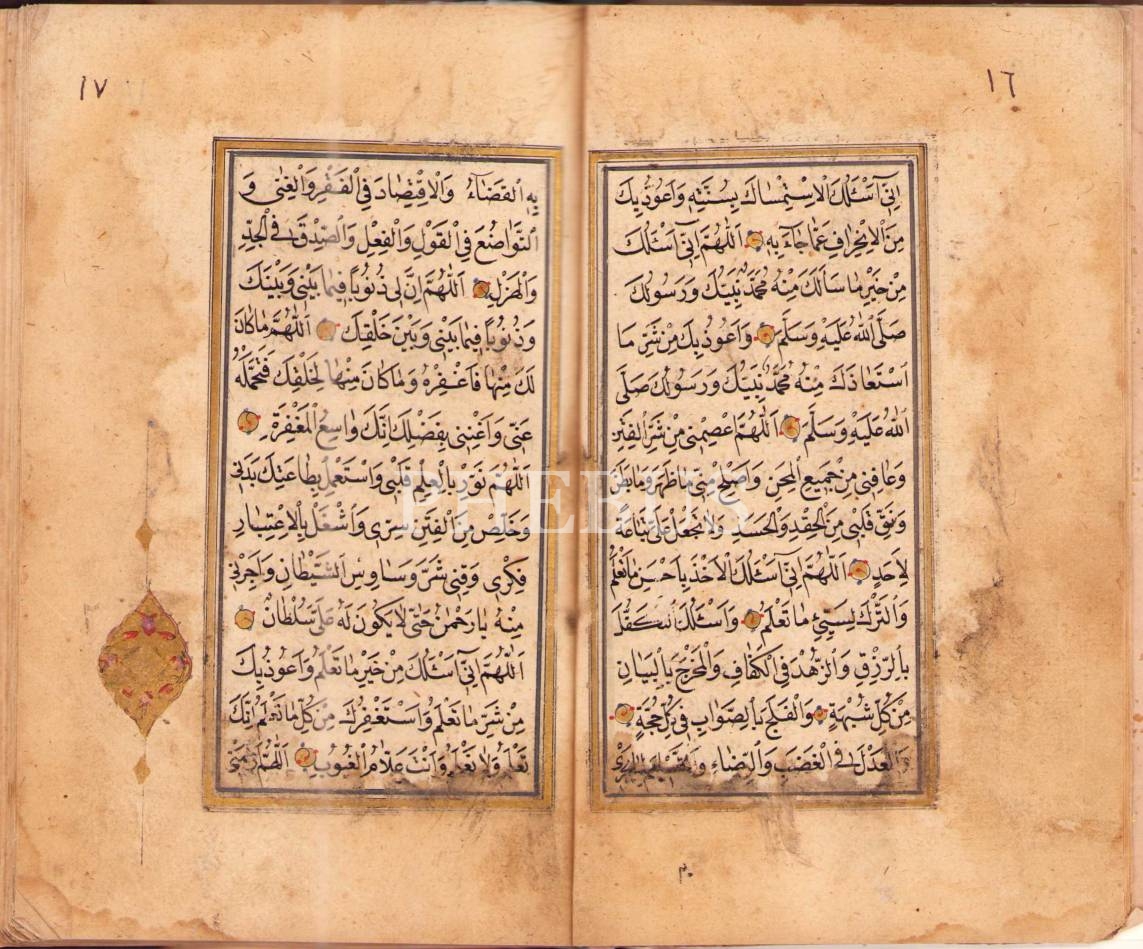 ١٦
اِنّٖٓى اَسْئَلُكَ الْاِسْتِمْسَاكَ بِسُنَّتِهٖ وَاَعُوذُ بِكَ
مِنَ الْاِنْحِرَافِ عَمَّا جَاءَ بِهٖ اَللّٰهُمَّ اِنّٖٓى اَسْئَلُكَ
مِنْ خَيْرِ مَا سَأَلَكَ مِنْهُ مُحَمَّدٌ نَبِيُّكَ وَرَسُولُكَ
صَلَّى اللّٰهُ عَلَيْهِ وَسَلَّمَ وَاَعُوذُ بِكَ مِنْ شَرِّ مَا
اسْتَعَاذَكَ مِنْهُ مُحَمَّدٌ نَبِيُّكَ وَرَسُولُكَ صَلَّى
اللّٰهُ عَلَيْهِ وَسَلَّمَ اَللّٰهُمَّ اعْصِمْنٖى مِنْ شَرِّ الْفِتَنِ
وَعَافِنٖى مِنْ جَمٖيعِ الْمِحَنِ وَاَصْلِحْ مِنّٖى مَا ظَهَرَ وَمَا بَطَنَ
وَنَقِّ قَلْبٖى مِنَ الْحِقْدِ وَالْحَسَدِ وَلَا تَجْعَلْ عَلَىَّ تِبَاعَةً
لِاَحَدٍ اَللّٰهُمَّ اِنّٖٓى اَسْئَلُكَ الْاَخْذَ بِاَحْسَنِ مَا تَعْلَمُ
وَالتَّرْكَ لِسَيِّئِ مَا تَعْلَمُ وَاَسْئَلُكَ التَّكَفُّلَ
بِالرِّزْقِ وَالزُّهْدَ فِى الْكَفَافِ وَالْمَخْرَجَ بِالْبَيَانِ
مِنْ كُلِّ شُبْهَةٍ وَالْفَلَجَ بِالصَّوَابِ فٖى كُلِّ حُجَّةٍ
وَالْعَدْلَ فِى الْغَضَبِ وَالرِّضَاءِ
١٧
بِهِ الْقَضَاءُ وَالْاِقْتِصَادَ فِى الْفَقْرِ وَالْغِنٰى وَ
التَّوَاضُعَ فِى الْقَوْلِ وَالْفِعْلِ وَالصِّدْقَ فِى الْجِدِّ
وَالْهَزْلِ اَللّٰهُمَّ اِنَّ لٖى ذُنُوبًا فٖيمَا بَيْنٖى وَبَيْنَكَ
وَذُنُوبًا فٖيمَا بَيْنٖى وَبَيْنَ خَلْقِكَ اَللّٰهُمَّ مَا كَانَ
لَكَ مِنْهَا فَاغْفِرْهُ وَمَا كَانَ مِنْهَا لِخَلْقِكَ فَتَحَمَّلْهُ
عَنّٖى وَاَغْنِنٖى بِفَضْلِكَ اِنَّكَ وَاسِعُ الْمَغْفِرَةِ
اَللّٰهُمَّ نَوِّرْ بِالْعِلْمِ قَلْبٖى وَاسْتَعْمِلْ بِطَاعَتِكَ بَدَنٖى
وَخَلِّصْ مِنَ الْفِتَنِ سِرّٖى وَاشْغَلْ بِالْاِعْتِبَارِ
فِكْرٖى وَقِنٖى شَرَّ وَسَاوِسِ الشَّيْطَانِ وَاَجِرْنٖى
مِنْهُ يَا رَحْمٰنُ حَتّٰى لَا يَكُونَ لَهُ عَلَىَّ سُلْطَانٌ
اَللّٰهُمَّ اِنّٖٓى اَسْئَلُكَ مِنْ خَيْرِ مَا تَعْلَمُ وَاَعُوذُ بِكَ
مِنْ شَرِّ مَا تَعْلَمُ وَاَسْتَغْفِرُكَ مِنْ كُلِّ مَا تَعْلَمُ اِنَّكَ
تَعْلَمُ وَلَا نَعْلَمُ وَاَنْتَ عَلَّامُ الْغُيُوبِ اَللّٰهُمَّ ارْحَمْنٖى